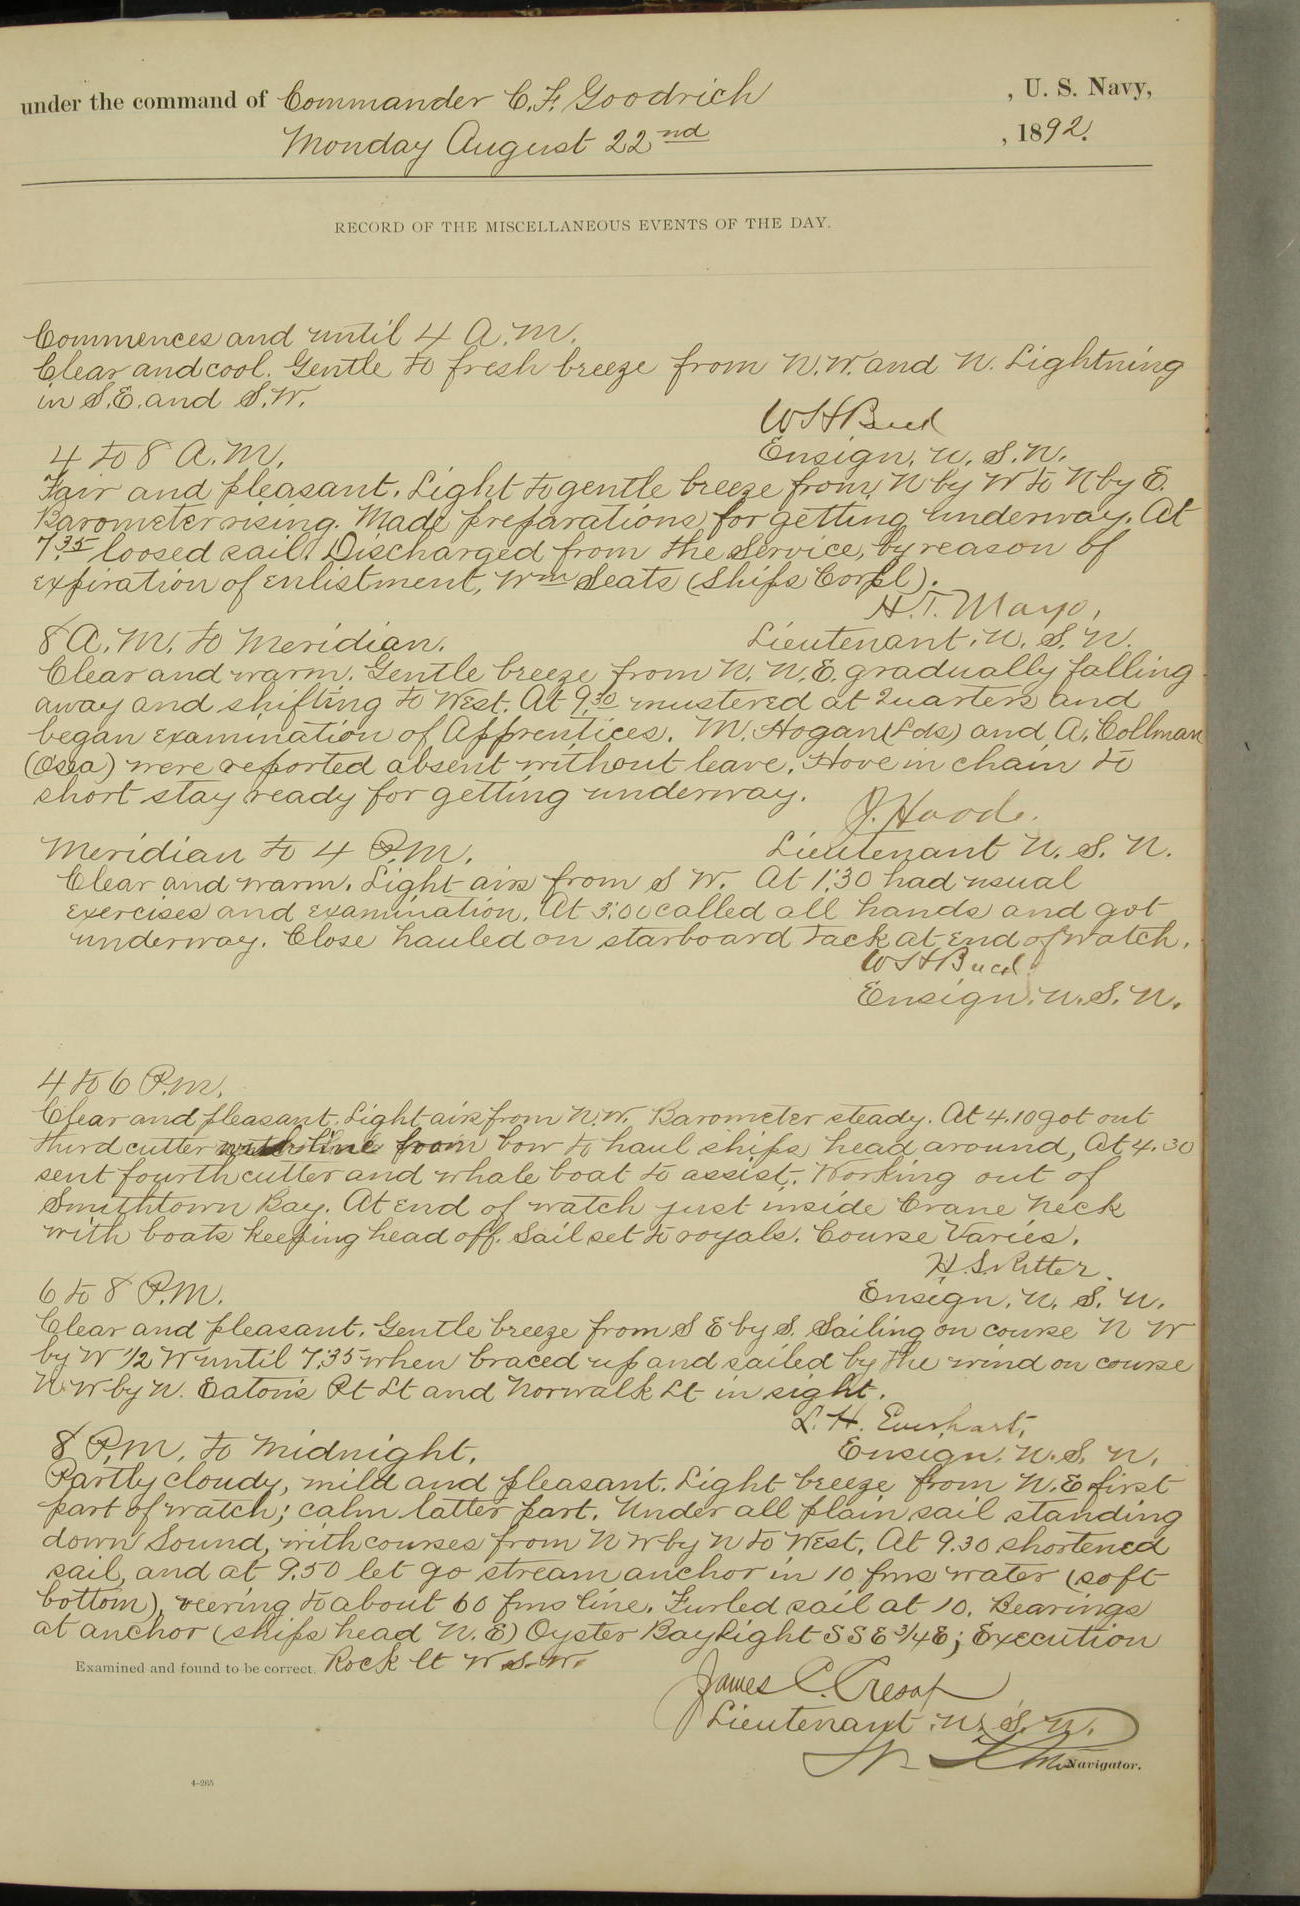 under the command of Commander C. F. Goodrich , U. S. Navy,
Monday August 22nd , 1892.
RECORD OF THE MISCELLANEOUS EVENTS OF THE DAY.
Commences and until 4 A.M.
Clear and cool. Gentle to fresh breeze from N.W. and N. Lightning
in S.E. and S.W.
W H Buck
Ensign. U. S. N.
4 to 8 A.M.
Fair and pleasant. Light to gentle breeze from N by W to N by E.
Barometer rising. Made preparations for getting underway. At
7.35 loosed sail. Discharged from the Service, by reason of
expiration of enlistment, Wm Seats (Ships Corpl).
H. T. Mayo,
Lieutenant. U. S. N.
8 A.M. to Meridian.
Clear and warm. Gentle breeze from N. N.E. gradually falling
away and shifting to West. At 9.30 mustered at Quarters and
began examination of Apprentices. M. Hogan (Lds) and A. Collman
(Osea) were reported absent without leave. Hove in chain to
short stay ready for getting underway.
J. Hood.
Lieutenant U. S. N.
Meridian to 4 P.M.
Clear and warm. Light airs from S W. At 1:30 had usual
exercises and examination. At 3:00 called all hands and got
underway. Close hauled on starboard tack at end of watch.
W H Buck
Ensign. U. S. N.
4 to 6 P.M.
Clear and pleasant. Light airs from N.W. Barometer steady. At 4.10 got out
third cutter with line from bow to haul ships head around, At 4.30
sent fourth cutter and whale boat to assist. Working out of
Smithtown Bay. At end of watch just inside Crane Neck
with boats keeping head off. Sail set to royals. Course Varies.
H. S. Ritter.
Ensign. U. S. N.
6 to 8 P.M.
Clear and pleasant. Gentle breeze from S E by S. Sailing on course N W
by W 1/2 W until 7.35 when braced up and sailed by the wind on course
N. W by N. Eaton's Pt Lt and Norwalk Lt in sight.
L. H. Everhart,
Ensign. U. S. N.
8 P.M. to Midnight.
Partly cloudy, mild and pleasant. Light breeze from N.E first
part of watch; calm latter part. Under all plain sail standing
down Sound, with courses from N W by N to West. At 9.30 shortened
sail, and at 9.50 let go stream anchor in 10 fms water (soft
bottom), veering to about 60 fms line. Furled sail at 10. Bearings
at anchor (ships head N. E) Oyster Bay Light S S E 3/4 E; Execution
Examined and found to be correct. Rock Lt W. S. W.
James C. Cresap
Lieutenant. U. S. N.
Navigator.
4-265